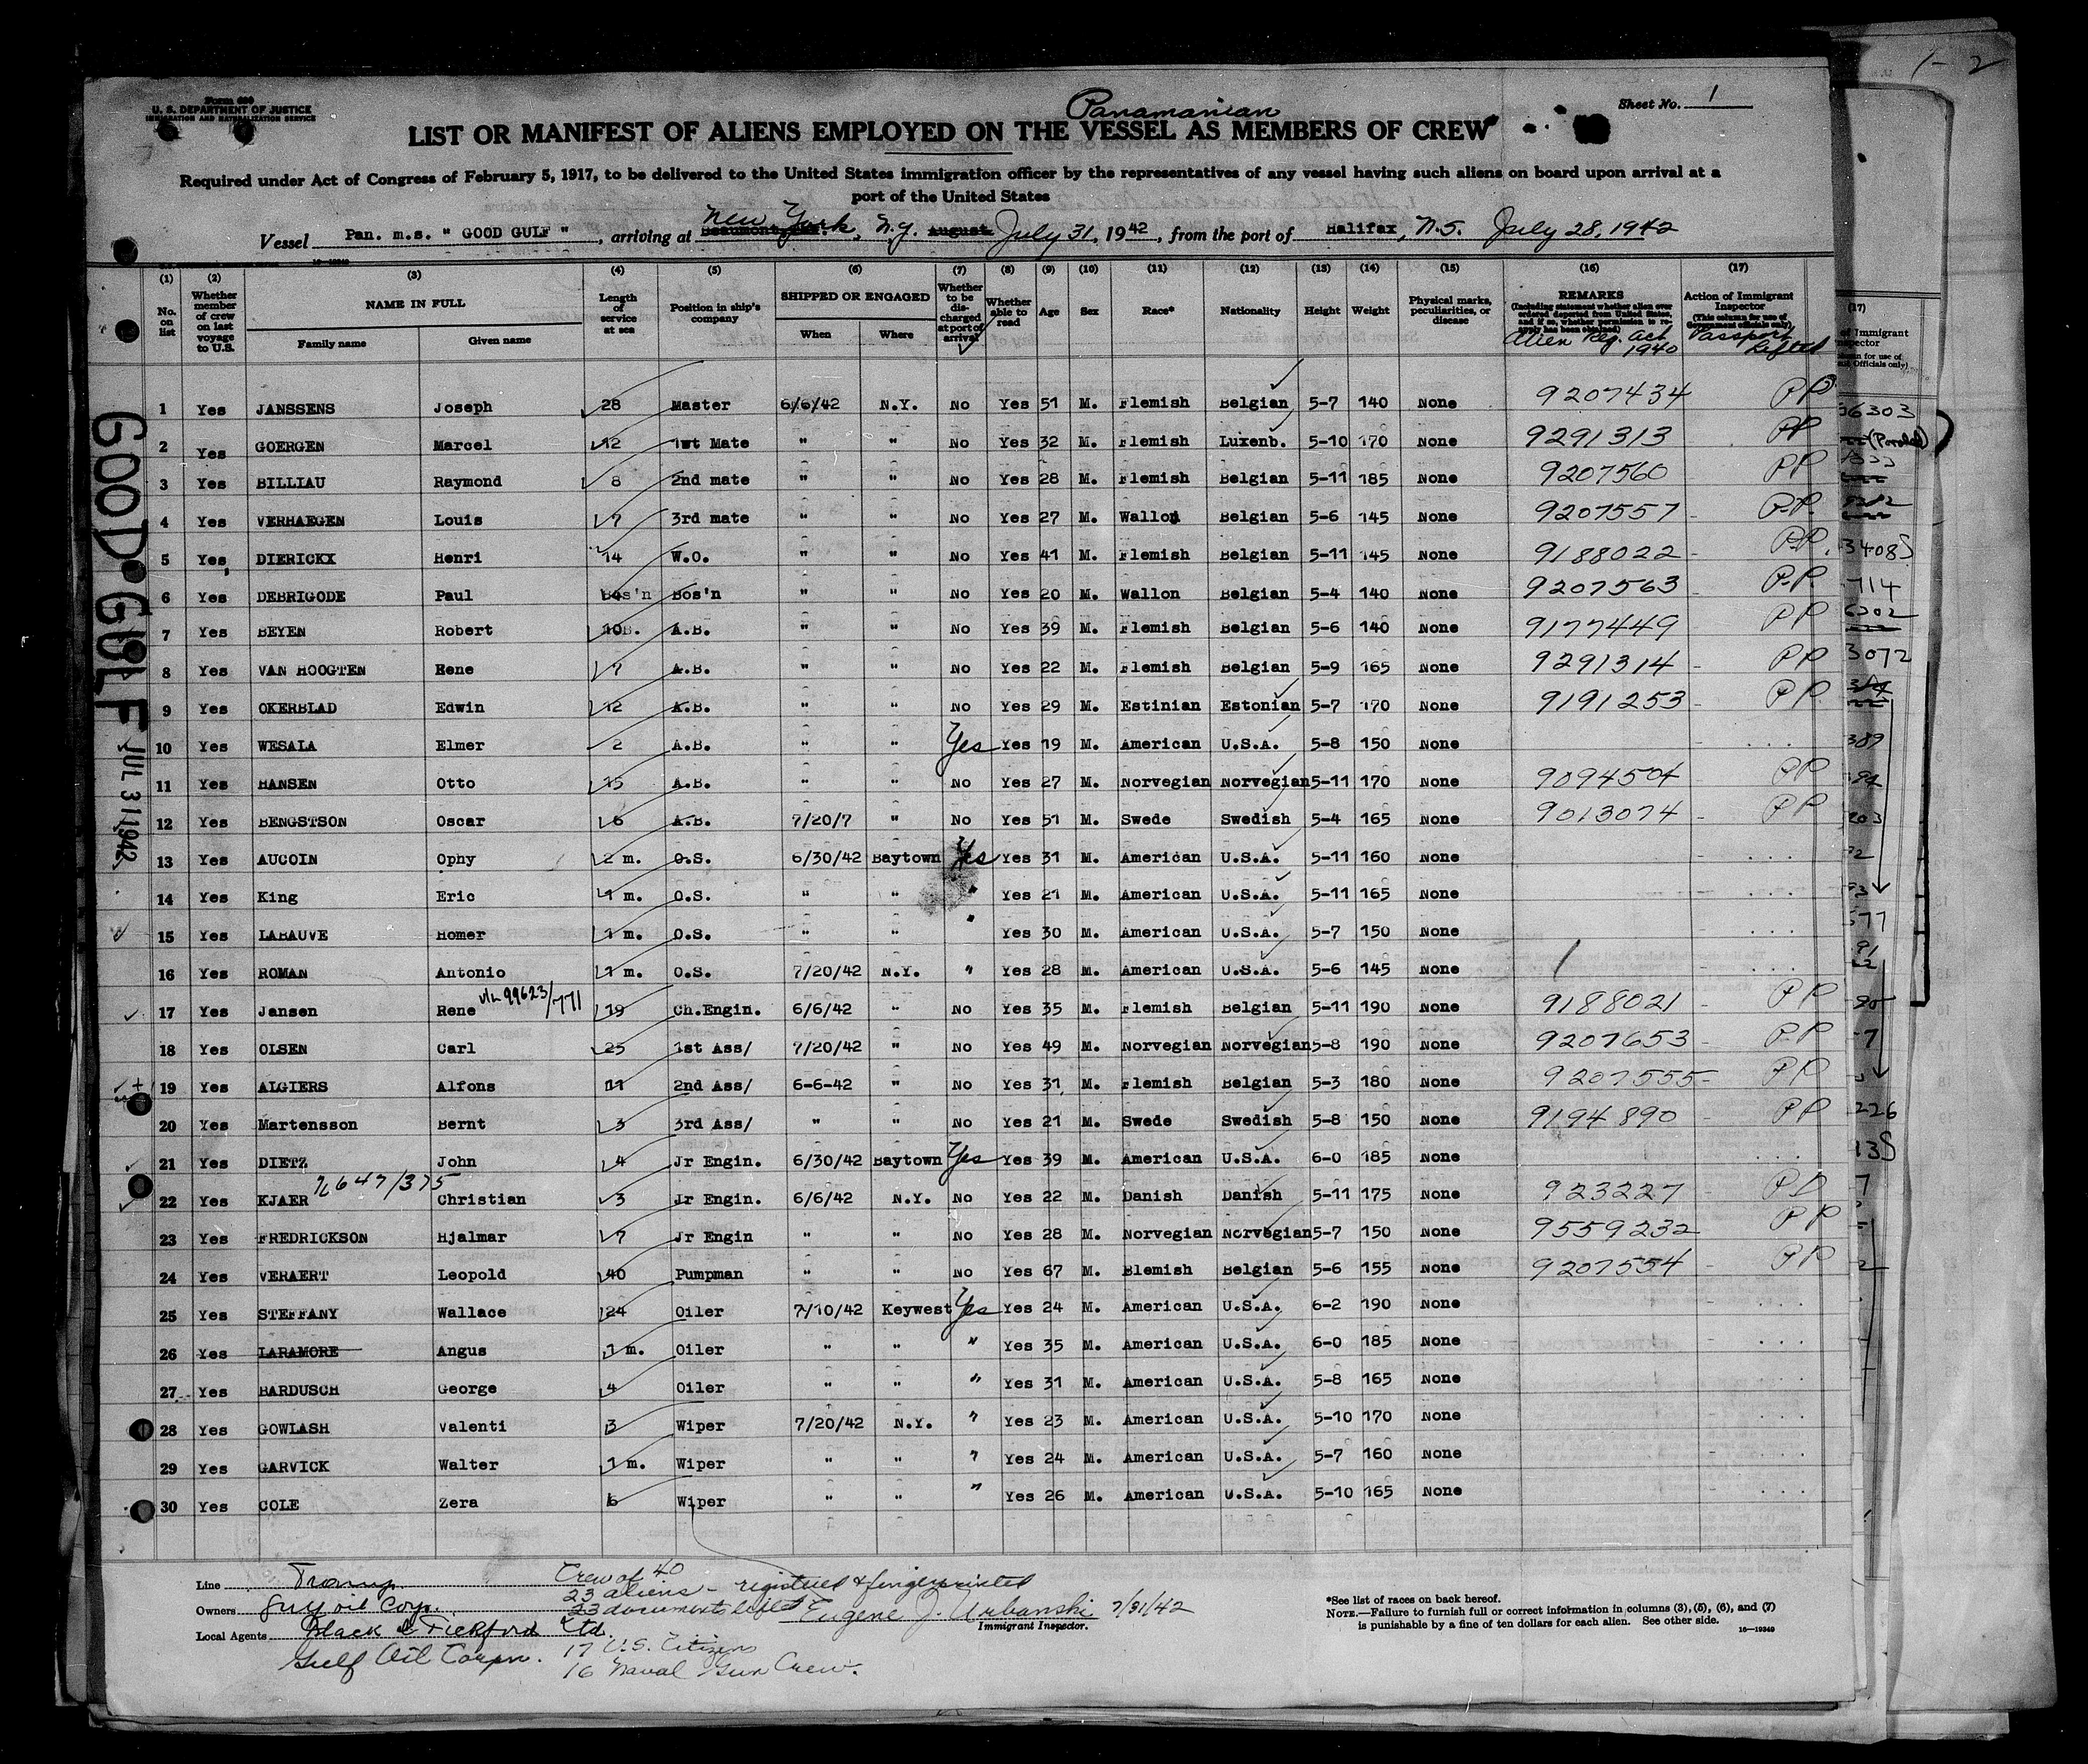 1-2
Form 680
U. S. DEPARTMENT OF JUSTICE
IMMIGRATION AND NATURALIZATION SERVICE
Sheet No. 1
Panamanian
LIST OR MANIFEST OF ALIENS EMPLOYED ON THE VESSEL AS MEMBERS OF CREW
Required under Act of Congress of February 5, 1917, to be delivered to the United States immigration officer by the representatives of any vessel having such aliens on board upon arrival at a
port of the United States
Vessel Pan. m.s. " GOOD GULF ", arriving at Beaumont New York, N.Y. August July 31, 1942, from the port of Halifax, N.S. July 28, 1942
16—19349
(1) (2) (3) (4) (5) (6) (7) (8) (9) (10) (11) (12) (13) (14) (15) (16) (17)
No. on list
Whether member of crew on last voyage to U.S.
NAME IN FULL
Family name
Given name
Length of service at sea
Position in ship's company
SHIPPED OR ENGAGED
When
Where
Whether to be discharged at port of arrival
Whether able to read
Age
Sex
Race*
Nationality
Height
Weight
Physical marks, peculiarities, or disease
REMARKS
(Including statement whether alien ever ordered deported from United States, and if so, whether permission to reapply has been obtained)
Alien Reg. Act 1940
Action of Immigrant Inspector
(This column for use of Government officials only)
Passport Lifted
1 Yes JANSSENS Joseph 28 Master 6/6/42 N.Y. No Yes 51 M. Flemish Belgian 5-7 140 None 9207434 PP
2 Yes GOERGEN Marcel 12 1wt Mate " " No Yes 32 M. Flemish Luxenb. 5-10 170 None 9291313 PP
3 Yes BILLIAU Raymond 8 2nd mate " " No Yes 28 M. Flemish Belgian 5-11 185 None 9207560 PP
4 Yes VERHAEGEN Louis 7 3rd mate " " No Yes 27 M. Wallon Belgian 5-6 145 None 9207557 - P.P.
5 Yes DIERICKX Henri 14 W.O. " " No Yes 41 M. Flemish Belgian 5-11 145 None 9188022 - P.P.
6 Yes DEBRIGODE Paul Bos'n " " No Yes 20 M. Wallon Belgian 5-4 140 None 9207563 - P.P.
7 Yes BEYEN Robert 10 A.B. " " No Yes 39 M. Flemish Belgian 5-6 140 None 9177449 - PP
8 Yes VAN HOOGTEN Rene 7 A.B. " " No Yes 22 M. Flemish Belgian 5-9 165 None 9291314 - PP
9 Yes OKERBLAD Edwin 12 A.B. " " No Yes 29 M. Estinian Estonian 5-7 170 None 9191253 - PP
10 Yes WESALA Elmer 2 A.B. " " Yes Yes 19 M. American U.S.A. 5-8 150 None
11 Yes HANSEN Otto 15 A.B. " " No Yes 27 M. Norwegian Norwegian 5-11 170 None 9094504 - PP
12 Yes BENGSTSON Oscar 6 A.B. 7/20/7 " No Yes 51 M. Swede Swedish 5-4 165 None 9013074 - PP
13 Yes AUCOIN Ophy 2 m. O.S. 6/30/42 Baytown Yes Yes 31 M. American U.S.A. 5-11 160 None
14 Yes King Eric 1 m. O.S. " " " Yes 21 M. American U.S.A. 5-11 165 None
15 Yes LABAUVE Homer 1 m. O.S. " " " Yes 30 M. American U.S.A. 5-7 150 None
16 Yes ROMAN Antonio 1 m. O.S. 7/20/42 N.Y. " Yes 28 M. American U.S.A. 5-6 145 None
17 Yes Jansen Rene 99623/771 19 Ch.Engin. 6/6/42 " No Yes 35 M. Flemish Belgian 5-11 190 None 9188021 - PP
18 Yes OLSEN Carl 25 1st Ass/ 7/20/42 " No Yes 49 M. Norwegian Norwegian 5-8 190 None 9207653 - PP
19 Yes ALGIERS Alfons 11 2nd Ass/ 6-6-42 " No Yes 31 M. Flemish Belgian 5-3 180 None 9207555 - PP
20 Yes Martensson Bernt 3 3rd Ass/ " " No Yes 21 M. Swede Swedish 5-8 150 None 9194890 - PP
21 Yes DIETZ John 4 Jr Engin. 6/30/42 Baytown Yes Yes 39 M. American U.S.A. 6-0 185 None
22 Yes KJAER 72647/375 Christian 3 Jr Engin. 6/6/42 N.Y. No Yes 22 M. Danish Danish 5-11 175 None 923227 - PP
23 Yes FREDRICKSON Hjalmar 7 Jr Engin " " No Yes 28 M. Norwegian Norwegian 5-7 150 None 9559232 PP
24 Yes VERAERT Leopold 40 Pumpman " " No Yes 67 M. Blemish Belgian 5-6 155 None 9207554 PP
25 Yes STEFFANY Wallace 24 Oiler 7/10/42 Keywest Yes Yes 24 M. American U.S.A. 6-2 190 None
26 Yes LARAMORE Angus 1 m. Oiler " " " Yes 35 M. American U.S.A. 6-0 185 None
27 Yes BARDUSCH George 4 Oiler " " " Yes 31 M. American U.S.A. 5-8 165 None
28 Yes GOWLASH Valenti 3 Wiper 7/20/42 N.Y. " Yes 23 M. American U.S.A. 5-10 170 None
29 Yes GARVICK Walter 1 m. Wiper " " " Yes 24 M. American U.S.A. 5-7 160 None
30 Yes COLE Zera 6 Wiper " " " Yes 26 M. American U.S.A. 5-10 165 None
GOOD GULF JUL 31 1942
Line Tramp
Owners Gulf Oil Corp.
Local Agents Black & Pickford Ltd.
Gulf Oil Corpn.
Crew of 40
23 aliens - registered & fingerprinted
23 documents lifted
17 U.S. Citizens
16 Naval Gun Crew.
Eugene J. Urbanski 7/31/42
Immigrant Inspector.
*See list of races on back hereof.
NOTE.—Failure to furnish full or correct information in columns (3), (5), (6), and (7)
is punishable by a fine of ten dollars for each alien. See other side.
16—19349